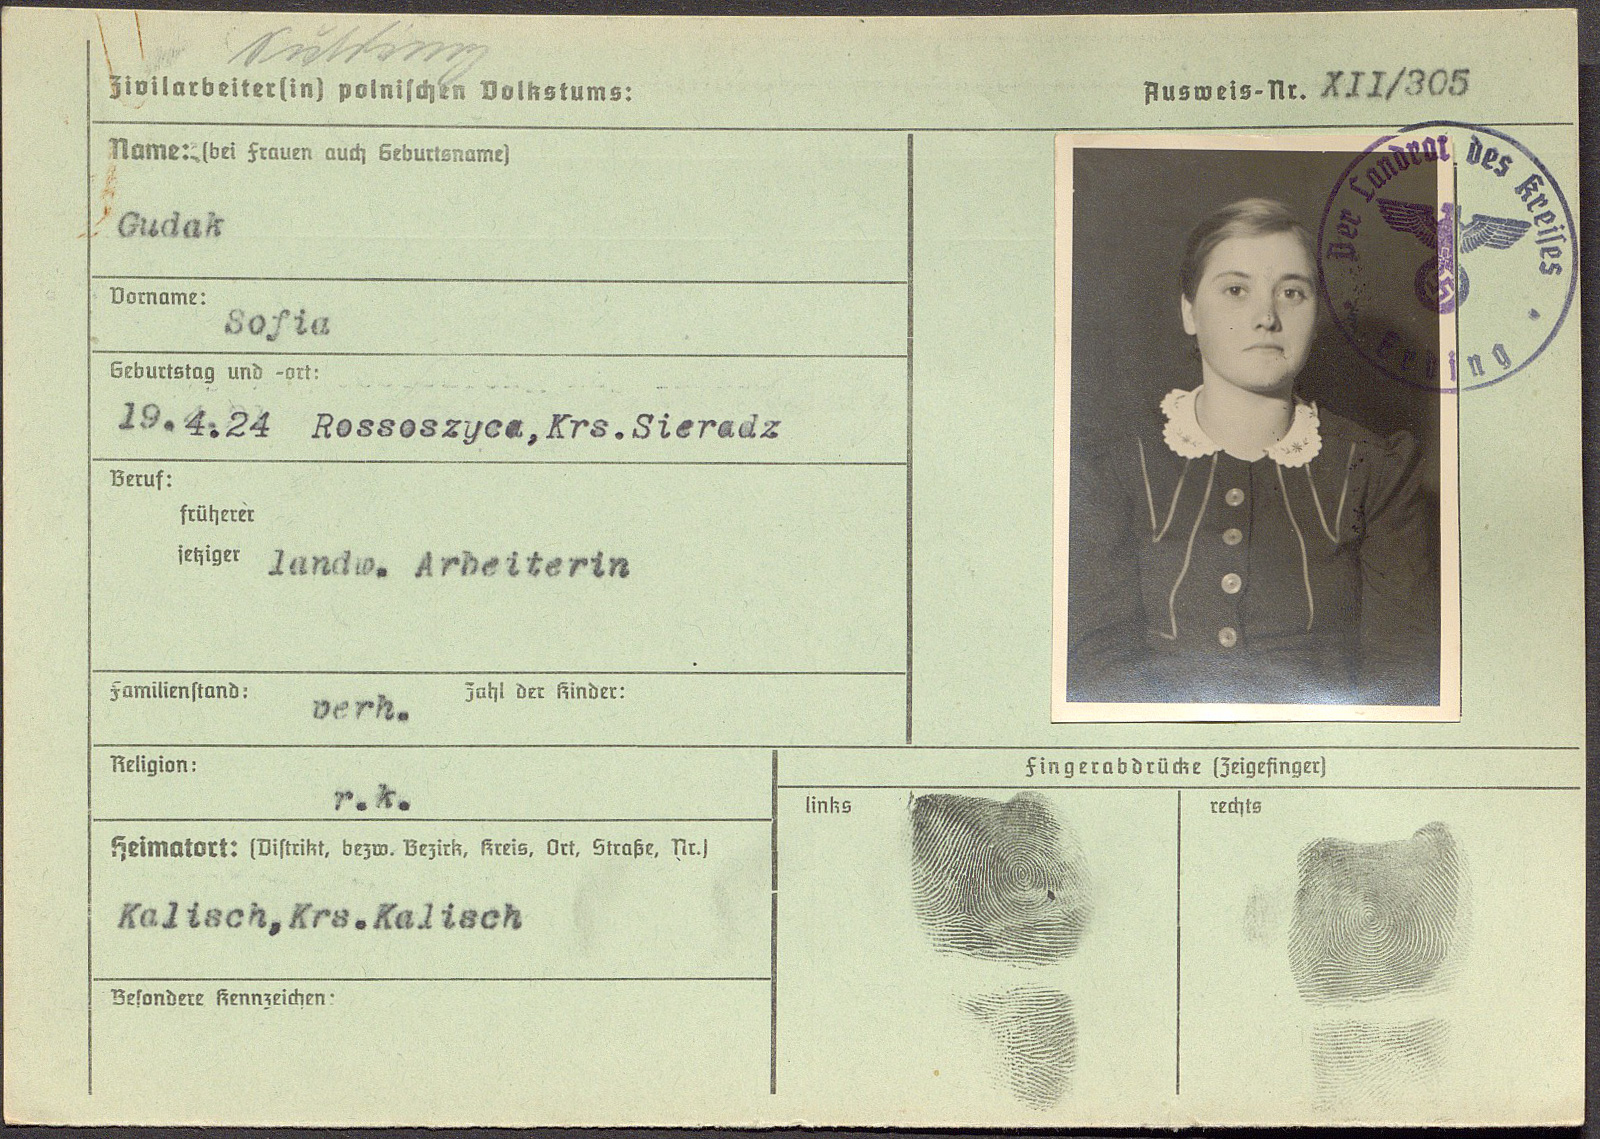 Zivilarbeiter(in) polnischen Volkstums:
Ausweis-Nr. XII/305
Name: (bei Frauen auch Geburtsname)
Gudak
Vorname:
Sofia
Geburtstag und -ort:
19.4.24 Rossoszyca,Krs.Sieradz
Beruf:
früherer
jetziger landw. Arbeiterin
Familienstand: verh. Zahl der Kinder:
Religion:
r.k.
Heimatort: (Distrikt, bezw. Bezirk, Kreis, Ort, Straße, Nr.)
Kalisch,Krs.Kalisch
Besondere Kennzeichen:
Der Landrat des Kreises
Fingerabdrücke (Zeigefinger)
links
rechts